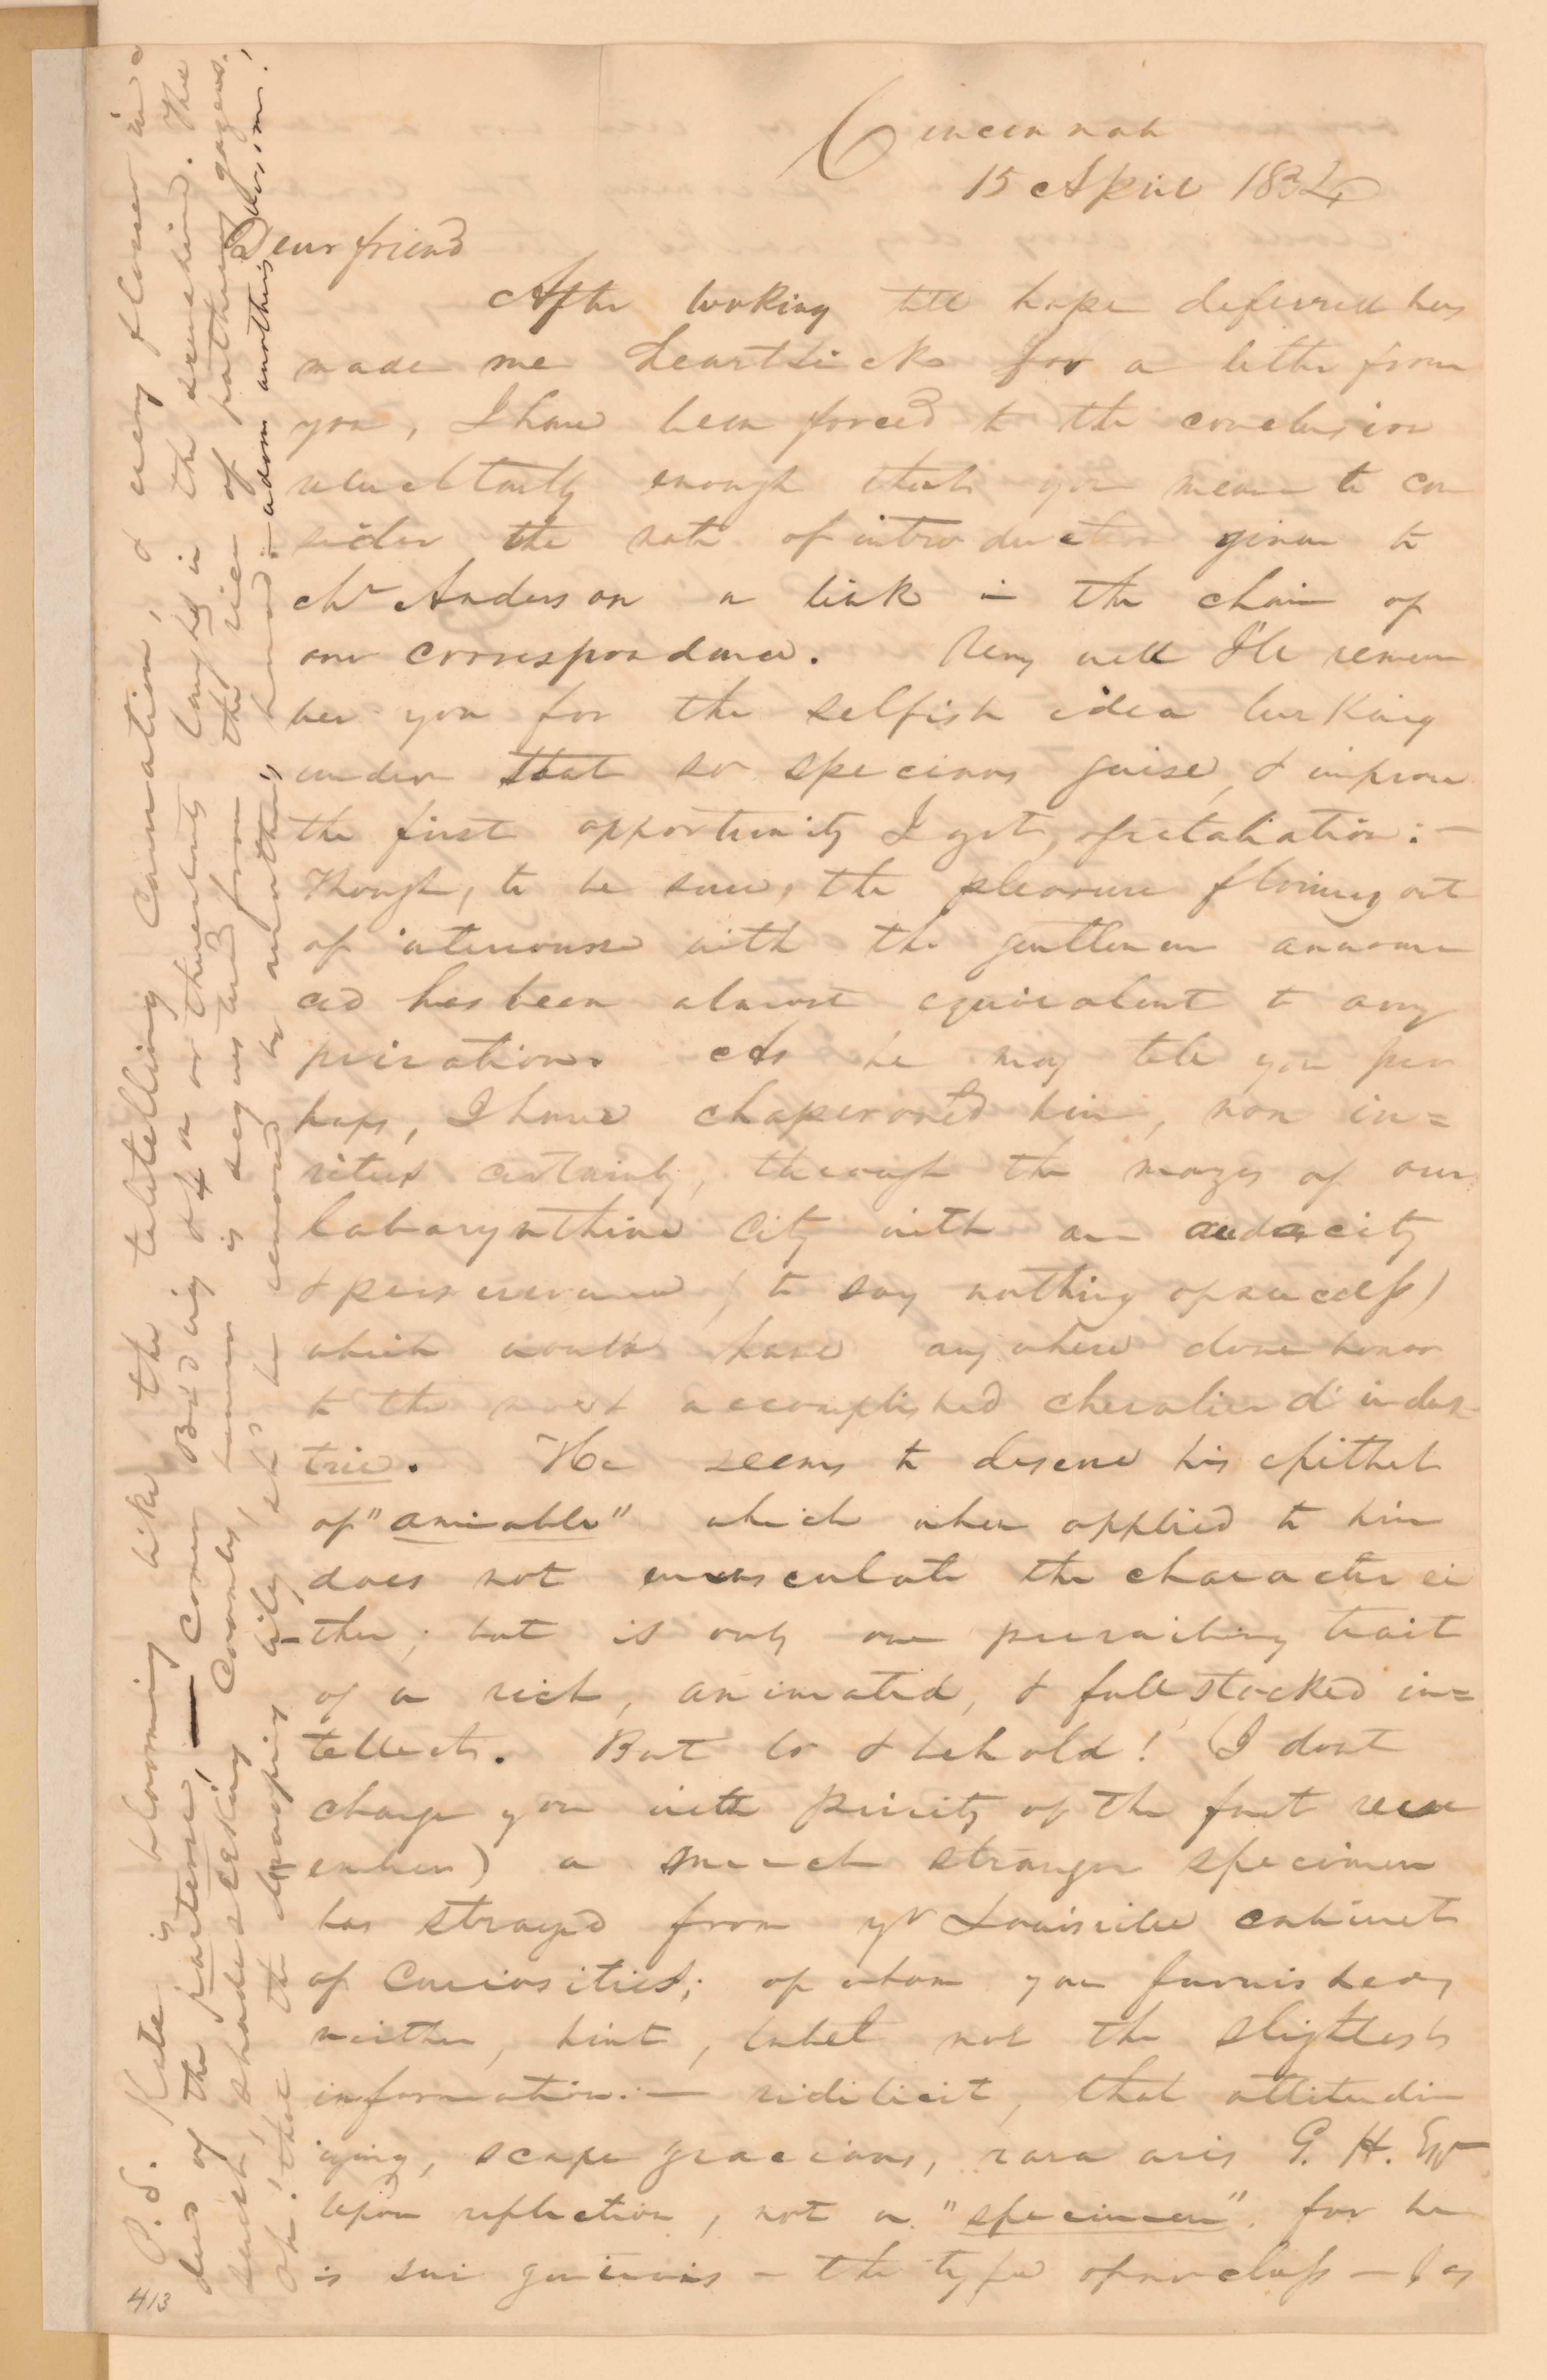 Cincinnati
15 April 1834
Dear friend
After looking till hope deferred has
made me heartsick for a letter from
you, I have been forced to the conclusion
reluctantly enough that you mean to con
sider the note of introduction given to
Mr Anderson a link in the chain of
our correspondence. Very well I'll remem
ber you for the selfish idea lurking
under that so specious guise, & improve
the first opportunity I get, of retaliation:—
Though, to be sure, the pleasure flowing out
of intercourse with the gentleman announ
ced has been almost equivalent to any
privation. As he may tell you per
haps, I have chaperoned him, non in=
vitus certainly, through the mazes of our
labarynthine City with an audacity
& perseverance, (to say nothing of success)
which would have any where done honor
to the most accomplished chevalier d'indus-
trie. He seems to deserve his epithet
of "amiable" which when applied to him
does not emasculate the character ei
-ther; but is only one prevailing trait
of a rich, animated, & full stocked in=
tellect. But lo & behold! (I dont
charge you with privity of the fact rem
ember) a much stranger specimen
has strayed from yr Louisville cabinet
of Curiosities; of whom you furnished
neither, hint, label nor the slightest
information:— videlicit, that attitudin
izing, scape gracious, rara avis G. H. Esqr
Upon reflection, not a "specimen" for he
is sui generis — the type of no class — (as
P.S. Kate is blooming like the taletelling Carnation, & every flower in
dues of the parterre, — comes Bidding of a or thereabouts laughs in the sunshine. The
sweet, shade seeking Coombs, human is sequestered from the view of pathway gazers.
Oh! that the drooping lily, sh'd be removed by another's hand:—adorn another's bosom!
413